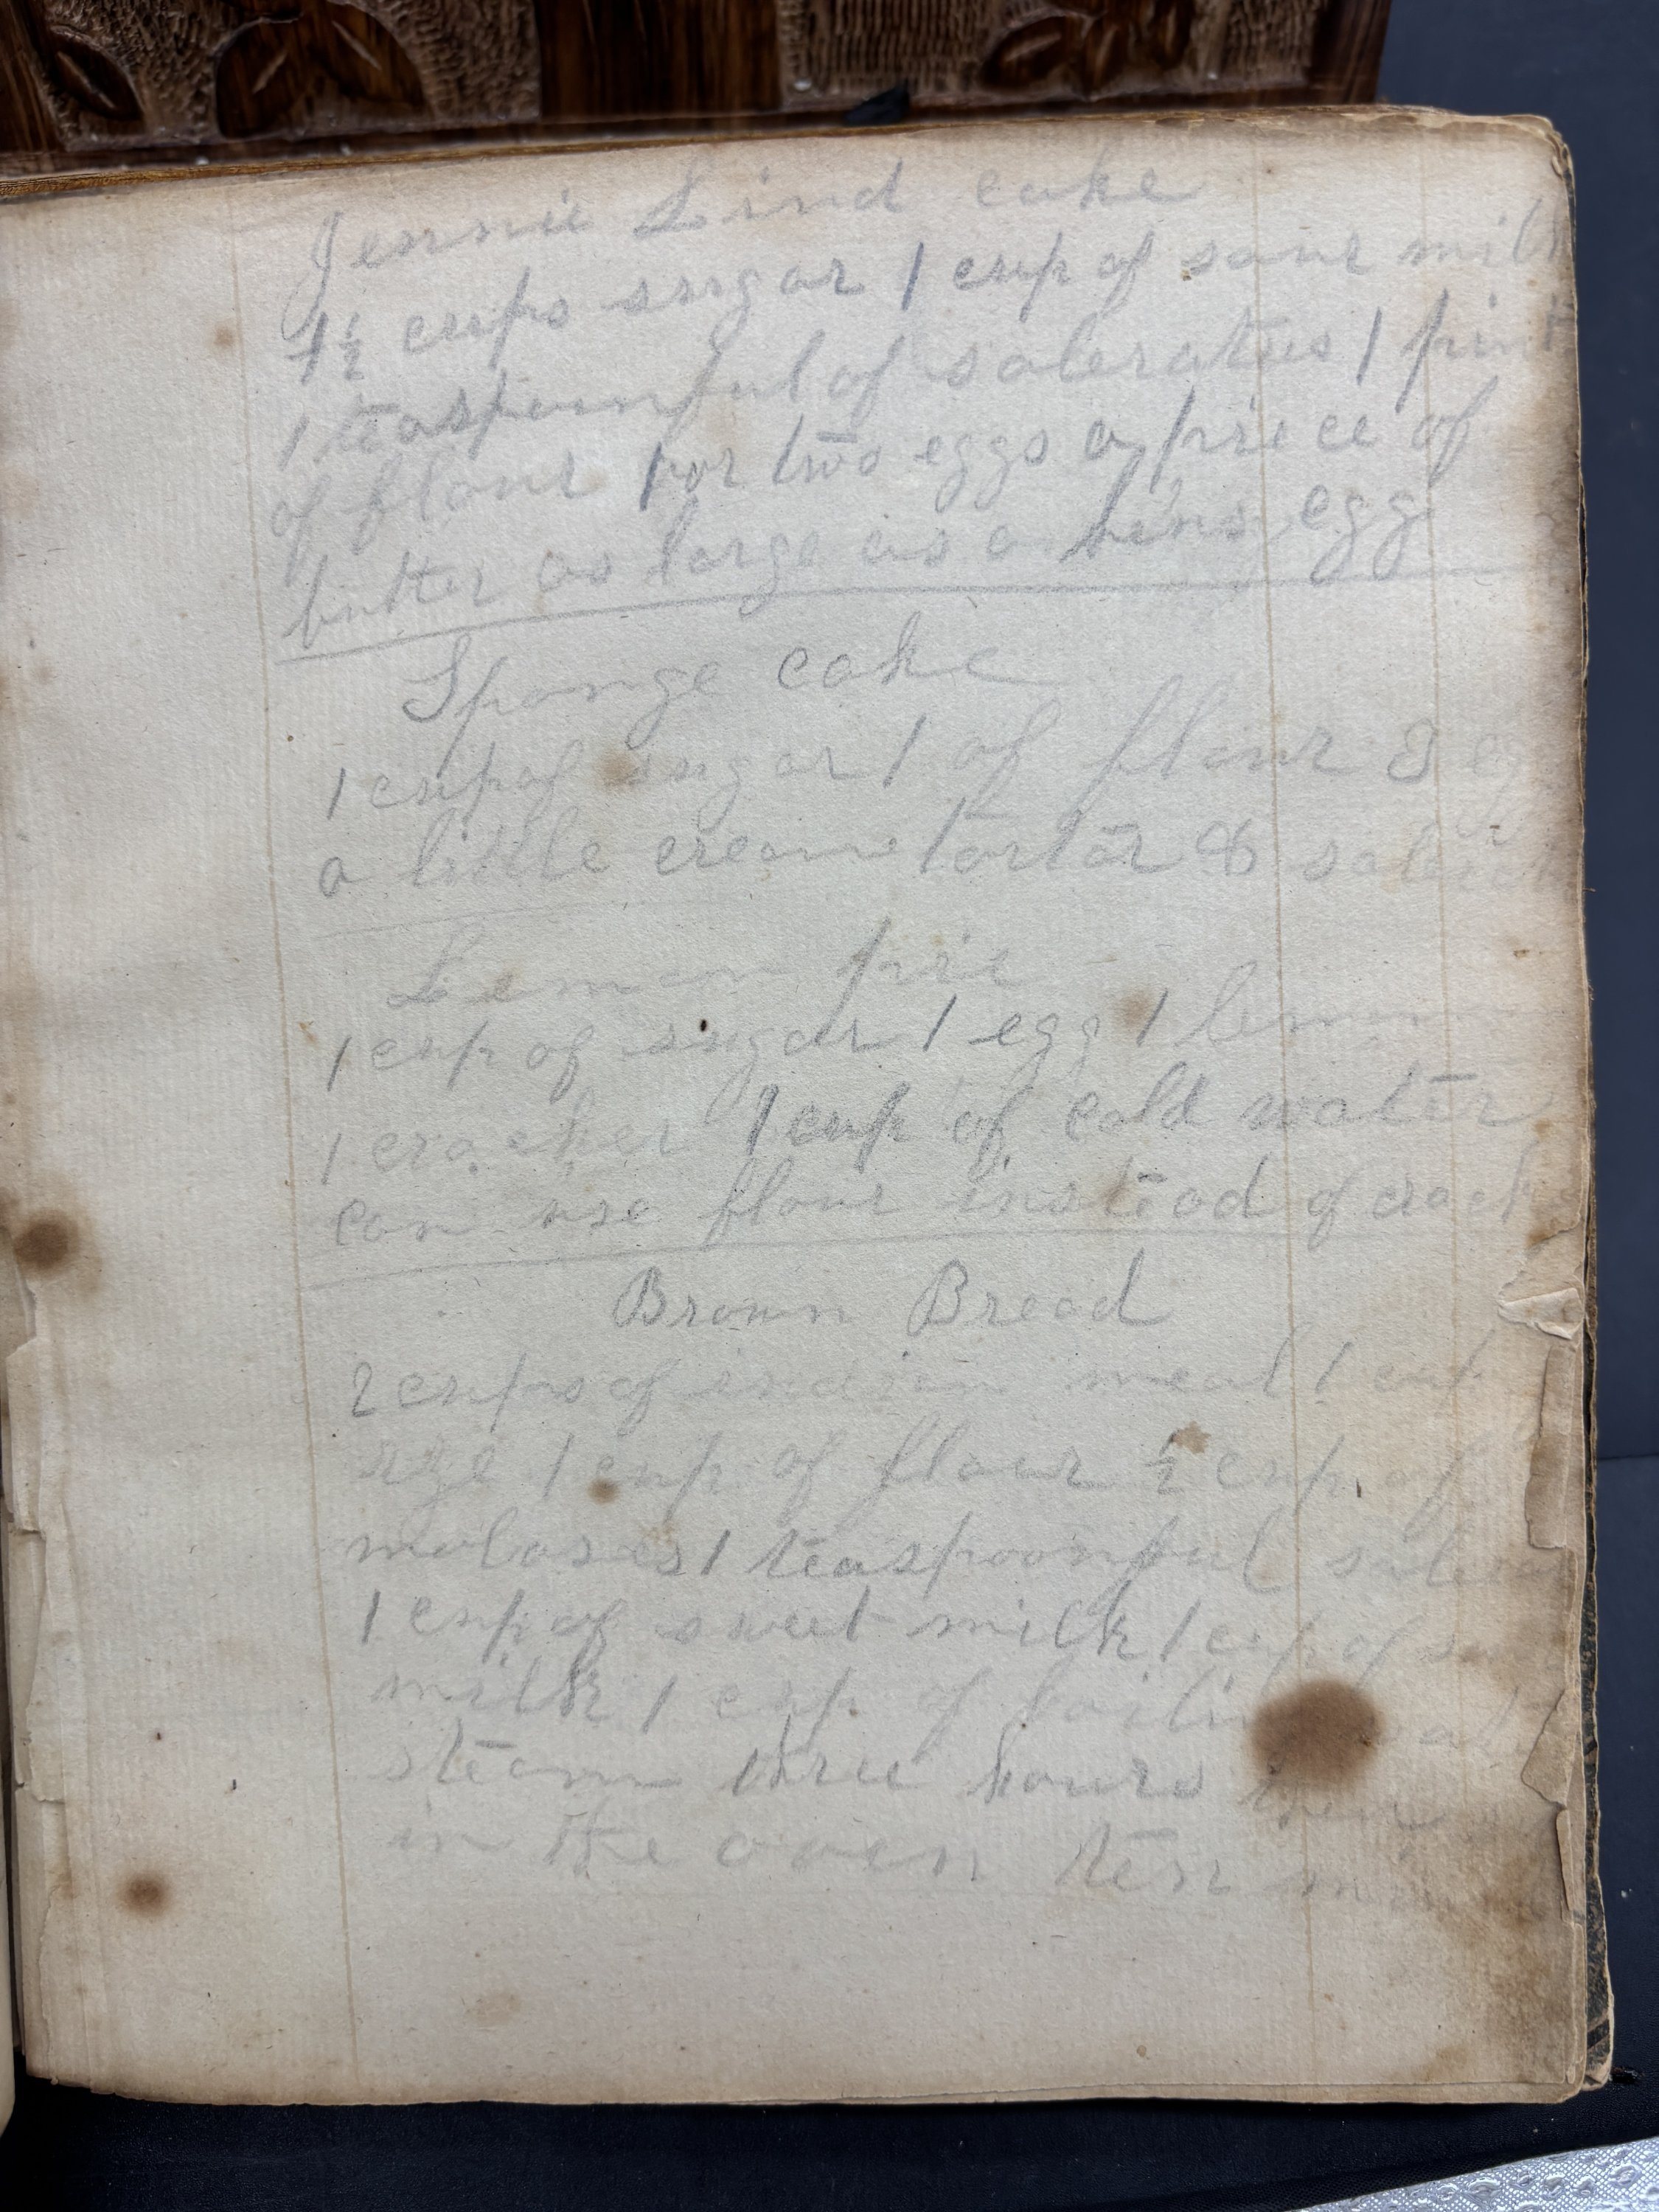 Jennie Lind cake
1½ cups sugar 1 cup of sour milk
1 teaspoonful of saleratus 1 pint
of flour 1 or two eggs a piece of
butter as large as a hens egg
Sponge cake
1 cup of sugar 1 of flour 3
a little cream tartar &
Lemon pie
1 cup of sugar 1 egg 1 lemon
1 cracker 1 cup of cold water
can use flour instead of
Brown Bread
2 cups of indian meal 1 cup
rye 1 cup of flour ½ cup of
molases 1 teaspoonful
1 cup of sweet milk 1 cup of
milk 1 cup of
steam three hours then
in the oven ten